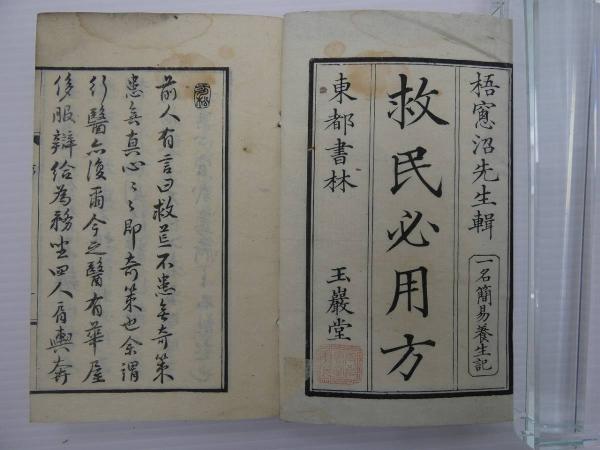 梧窓沼先生輯
一名簡易養生記
救民必用方
東都書林
玉巖堂
前人有言曰救荒不患無奇策
患無真心〻〻即奇策也余謂
行醫亦復爾今之醫有華屋
侈服辯給為務坐四人肩輿奔